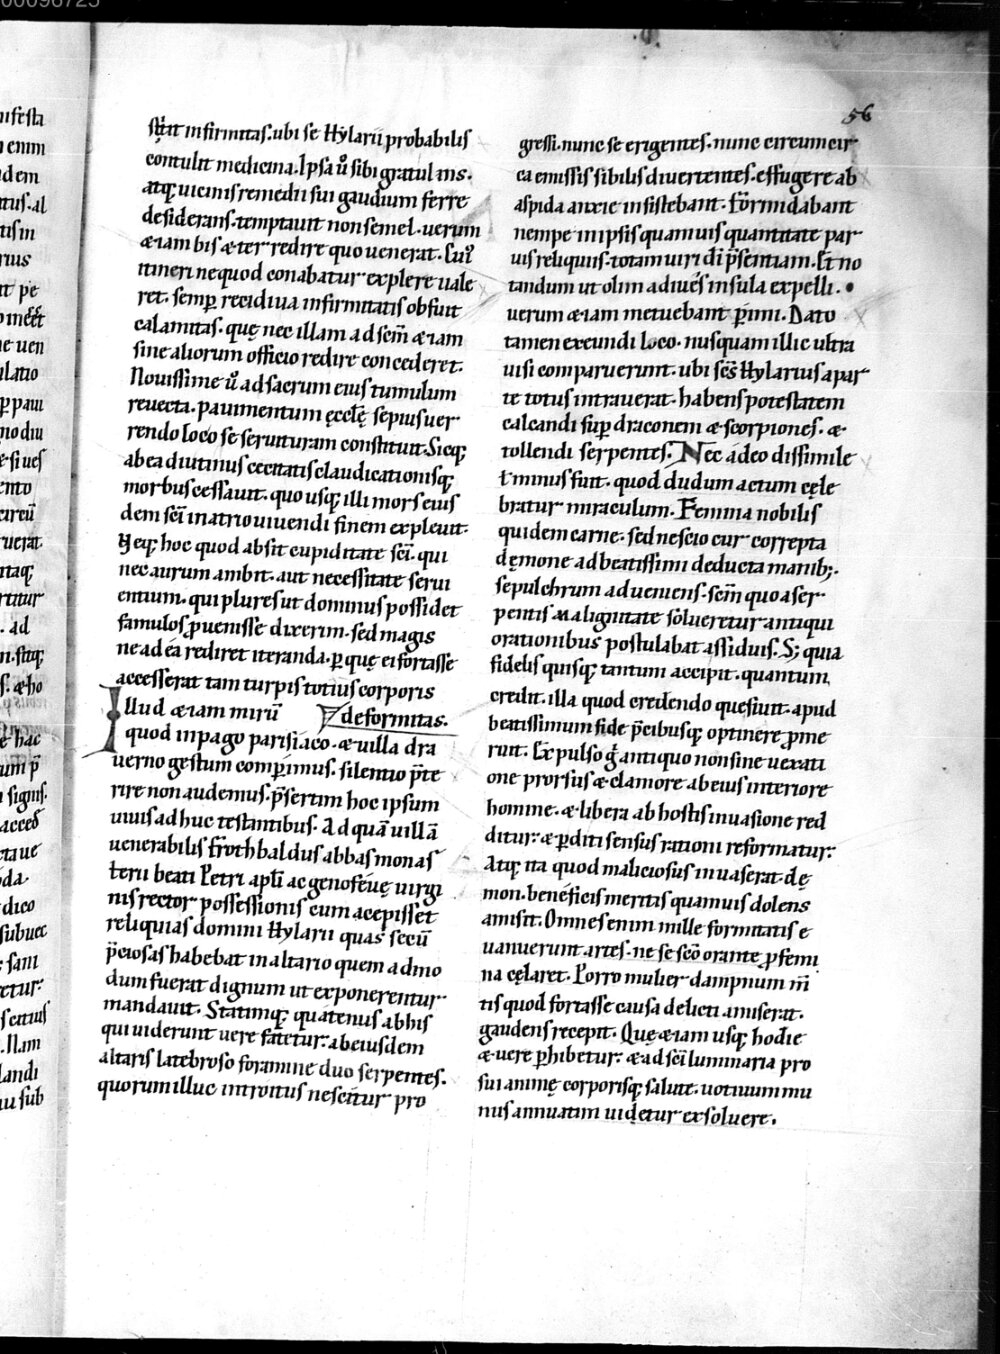 56
stitit infirmitas. ubi se Hylarii probabilis
contulit medicina. Ipsa ū sibi gratulans.
atq; uicinis remedii sui gaudium ferre
desiderans. temptauit non semel. uerum
æiam bis æ ter redire quo uenerat. Cui'
itineri ne quod conabatur explere uale
ret. semp recidiua infirmitatis obfuit
calamitas. quę nec illam ad sem æiam
sine aliorum officio redire concederet.
Nouissime ū ad sacrum eius tumulum
reuecta. pauimentum ęcclę sepius uer
rendo loco se seruituram constituit. Sicq;
ab ea diutinus cecitatis claudicationisq;
morbus cessauit. quousq; illi mors eius
dem sēi in atrio uiuendi finem expleuit.
Neq; hoc quod absit cupiditate sēi. qui
nec aurum ambit. aut necessitate serui
entium. qui plures ut dominus possidet
famulos puenisse dixerim. sed magis
ne ad ea rediret iteranda. p quę ei fortasse
accesserat tam turpis totius corporis
Illud æiam mirū deformitas.
quod in pago parisiaco. æ uilla dra
uerno gestum comperimus. silentio pte
rire non audemus. psertim hoc ipsum
uiuis adhuc testantibus. Ad quā uillā
uenerabilis Frothbaldus abbas monas
terii beati Petri apli ac genofeuę uirgi
nis rector possessionis cum accepisset
reliquias domini Hylarii quas secū
pciosas habebat in altario quem admo
dum fuerat dignum ut exponerentur
mandauit. Statimq; quatenus ab his
qui uiderunt uere fatetur. ab eiusdem
altaris latebroso foramine duo serpentes.
quorum illuc introitus nescitur pro
gressi. nunc se erigentes. nunc circumcir
ca emissis sibilis diuertentes. effugere ab
aspida anxie insistebant. Formidabant
nempe in ipsis quamuis quantitate par
uis reliquiis. totam uiri di psentiam. Et no
tandum ut olim a diues insula expelli.
uerum æiam metuebant pimi. Dato
tamen exeundi loco. nusquam illic ultra
uisi comparuerunt. ubi ses Hylarius a par
te totus intrauerat. habens potestatem
calcandi sup draconem æ scorpiones. æ
tollendi serpentes. Nec adeo dissimile
ł minus fuit. quod dudum actum cęle
bratur miraculum. Femina nobilis
quidem carne. sed nescio cur correpta
dęmone ad beatissimi deducta manib;.
sepulchrum adueniens. sem quo a ser
pentis malignitate solueretur antiqui
orationibus postulabat assiduis. S; quia
fidelis quisq; tantum accipit. quantum
credit. illa quod credendo quesiuit. apud
beatissimum fide pcibusq; optinere pme
ruit. Expulso g antiquo non sine uexati
one prorsus æ clamore ab eius interiore
homine. æ libera ab hostis inuasione red
ditur: æ pditi sensus rationi reformatur:
Atq; ita quod maliciosus inuaserat dę
mon. beneficis meritis quamuis dolens
amisit. Omnes enim mille formitatis e
uanuerunt artes. ne se sēo orante p femi
na cęlaret. Porro mulier dampnum m̄
tis quod fortasse causa delicti amiserat.
gaudens recepit. Quę æiam usq; hodie
æ uere phibetur. æ ad sēi luminaria pro
sui animę corporisq; salute. uotiuum mu
nus annuatim uidetur exsoluere.